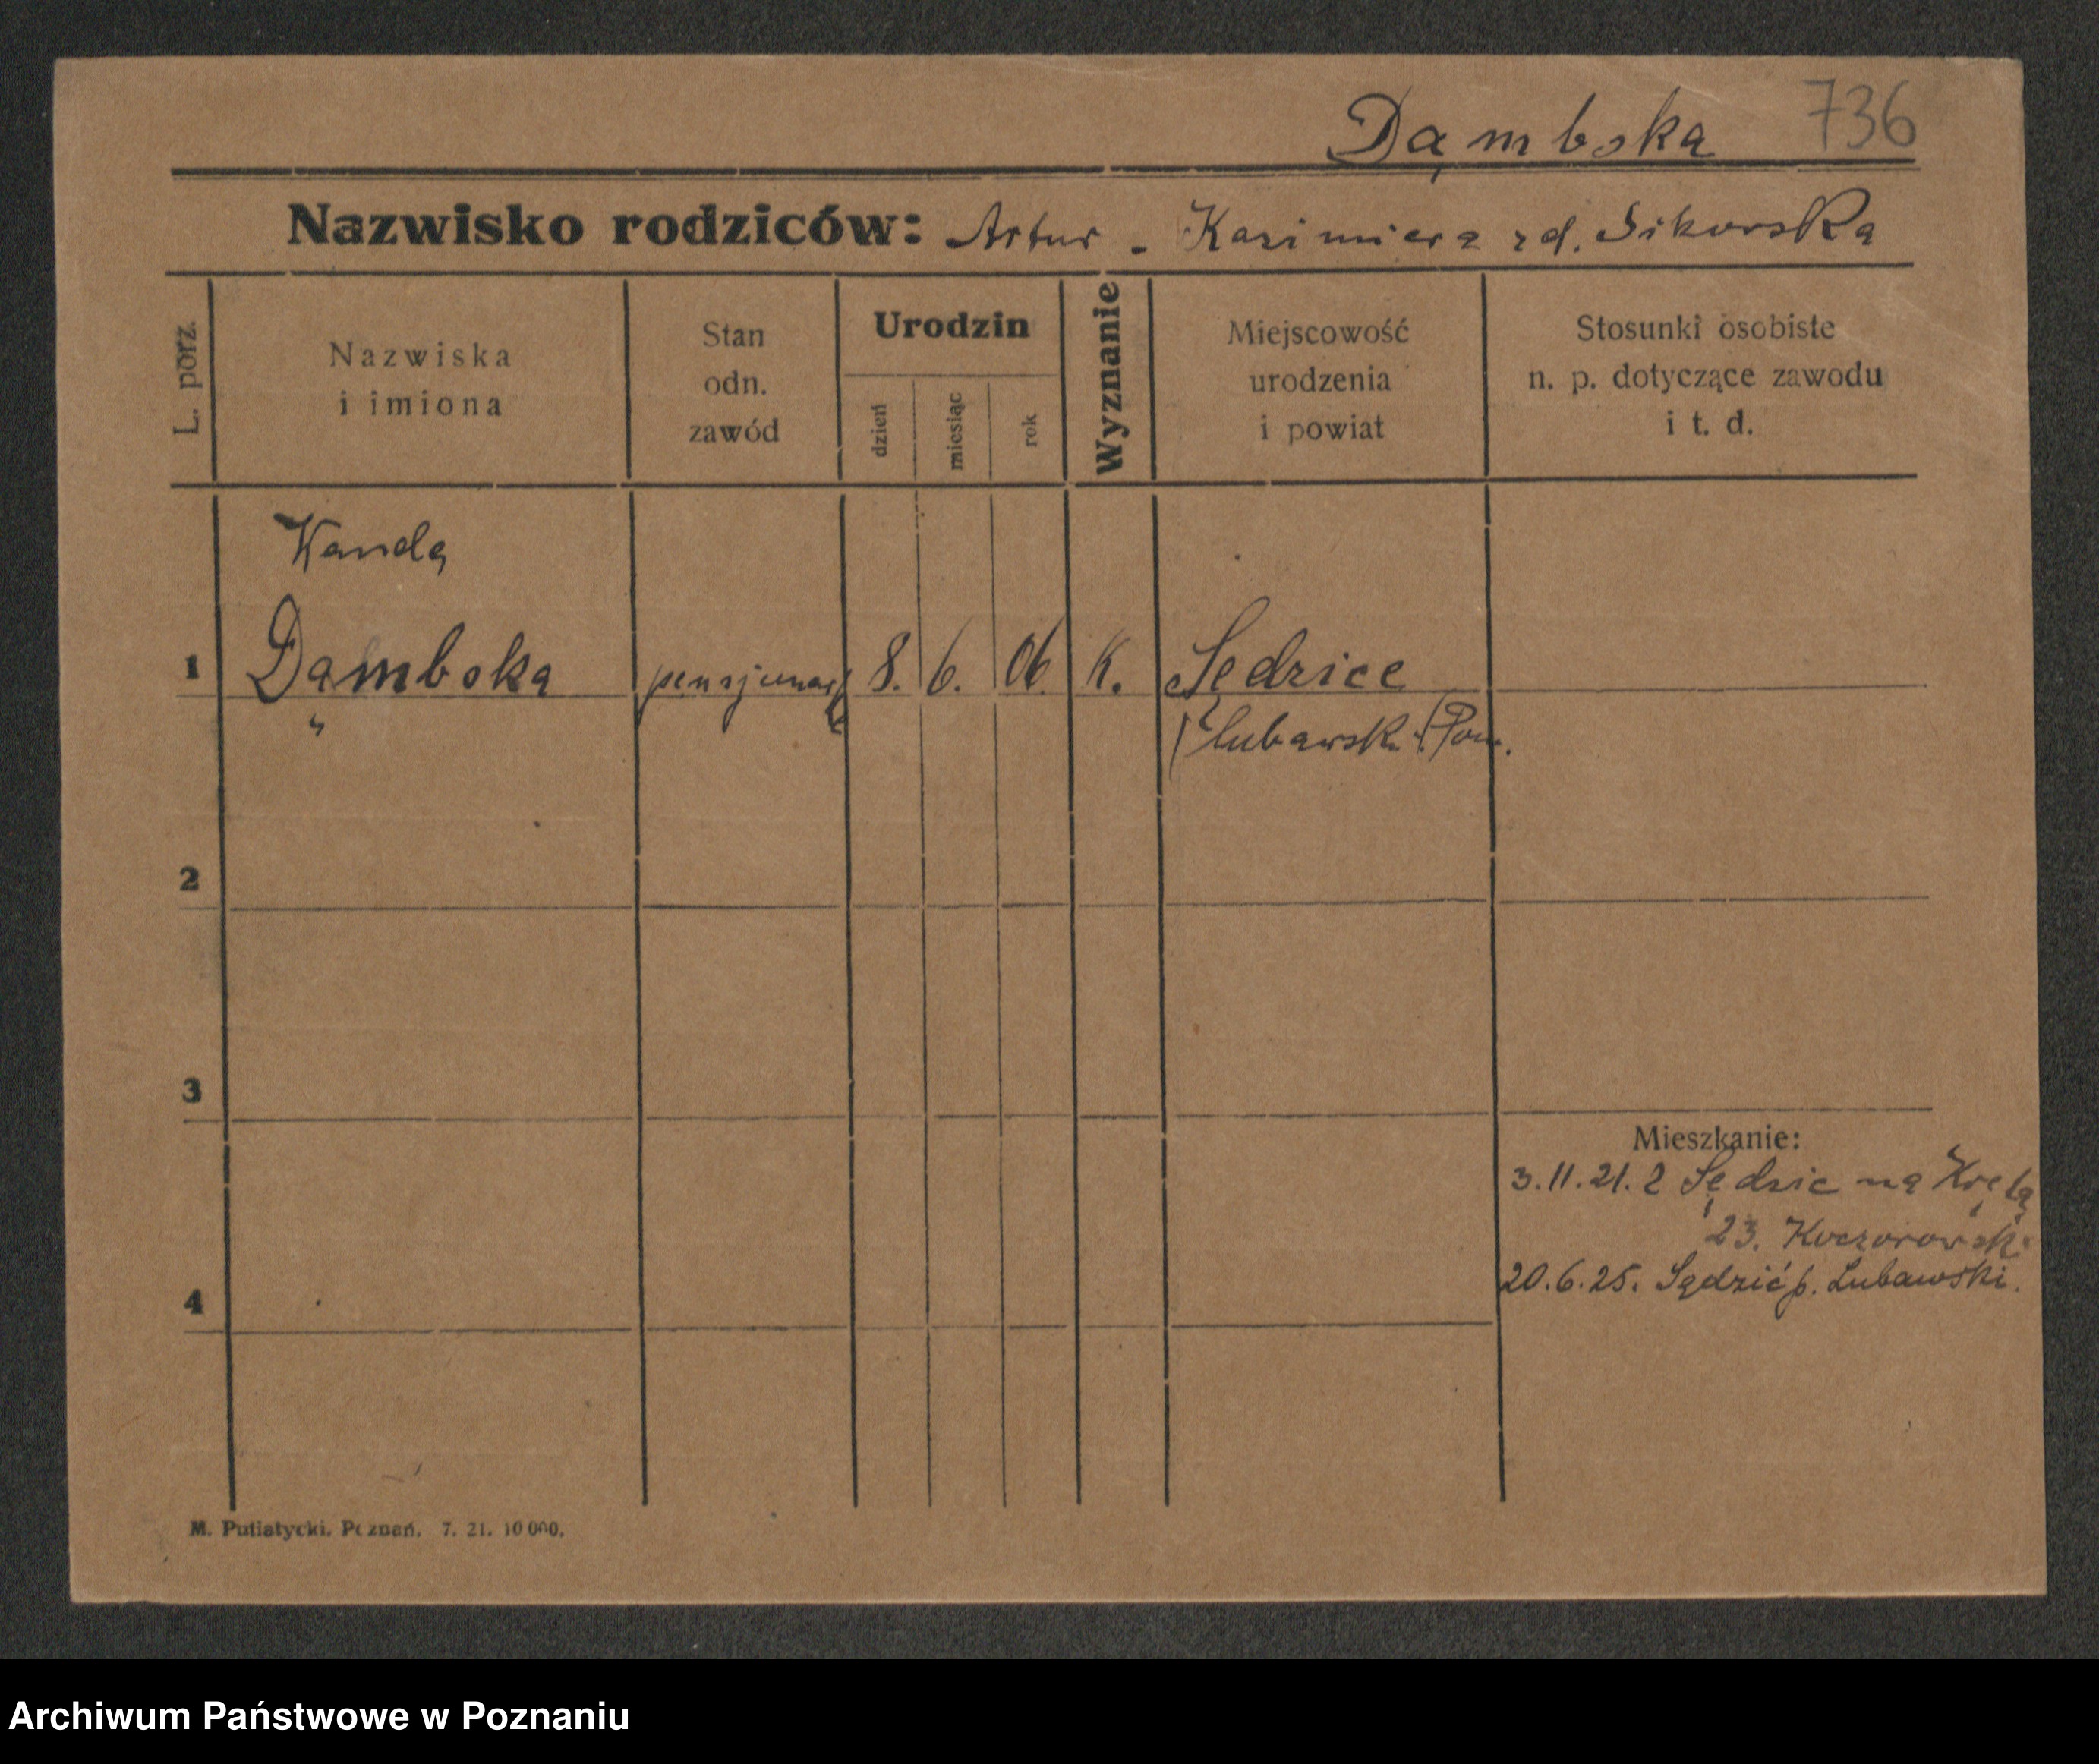 Dąmbska 736
Nazwisko rodziców: Artur - Kazimiera zd. Sikorska
L. porz.
Nazwiska
i imiona
Stan
odn.
zawód
Urodzin
dzień
miesiąc
rok
Wyznanie
Miejscowość
urodzenia
i powiat
Stosunki osobiste
n. p. dotyczące zawodu
i t. d.
Wanda
1 Dąmbska 8. 6. 06. K. Sędzice
lubawski (Pom.
2
3
4
Mieszkanie:
3.11.21. z Sędzic na Krętą
23. Koczorowski
20.6.25. Sądzić p. Lubawski.
M. Putiatycki. Poznań. 7. 21. 10 000.
Archiwum Państwowe w Poznaniu